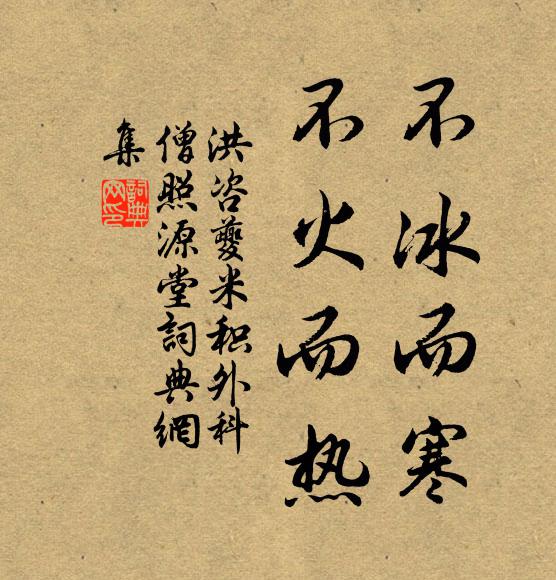 不冰而寒
不火而热
洪咨夔米积外科
僧照源堂詞典網
集
詞典网印